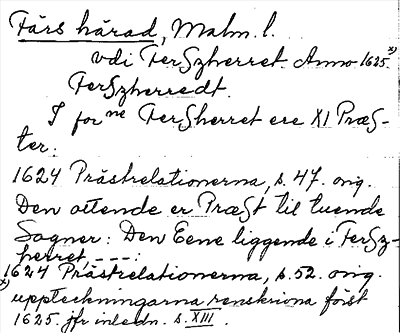 Färs härad, Malm. l.
vdi FerSzherret. Anno 1625. x)
FerSzherredt.
I for ne FerSherret ere XI PræS-
ter.
1624 Prästrelationerna, s. 47. orig.
Den ottende er PræSt til tuende
Sogner: Den Eene liggende i FerSz-
herret, - - - :
1624 Prästrelationerna, s. 52. orig.
x) uppteckningarna renskrivna först
1625 jfr inledn. s. XIII.